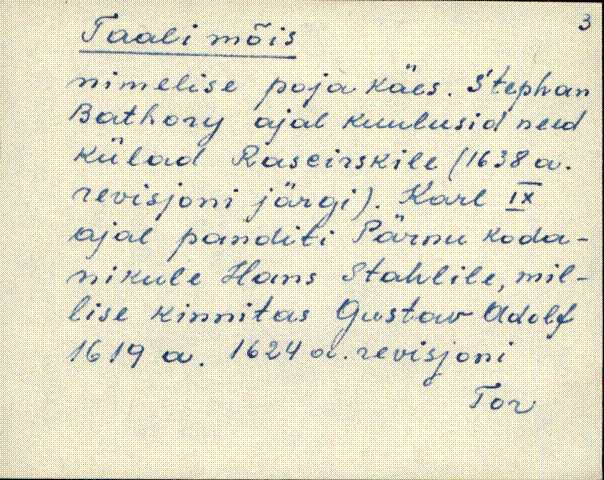 3
Taali mõis
nimelise poja käes. Stephan
Bathory ajal kuulusid need
külad Raseirskile (1638 a.
revisjoni järgi). Karl IX
ajal panditi Pärnu koda-
nikule Hans Stahlile, mil-
lise kinnitas Gustav Adolf
1619 a. 1624 a. revisjoni
Tor